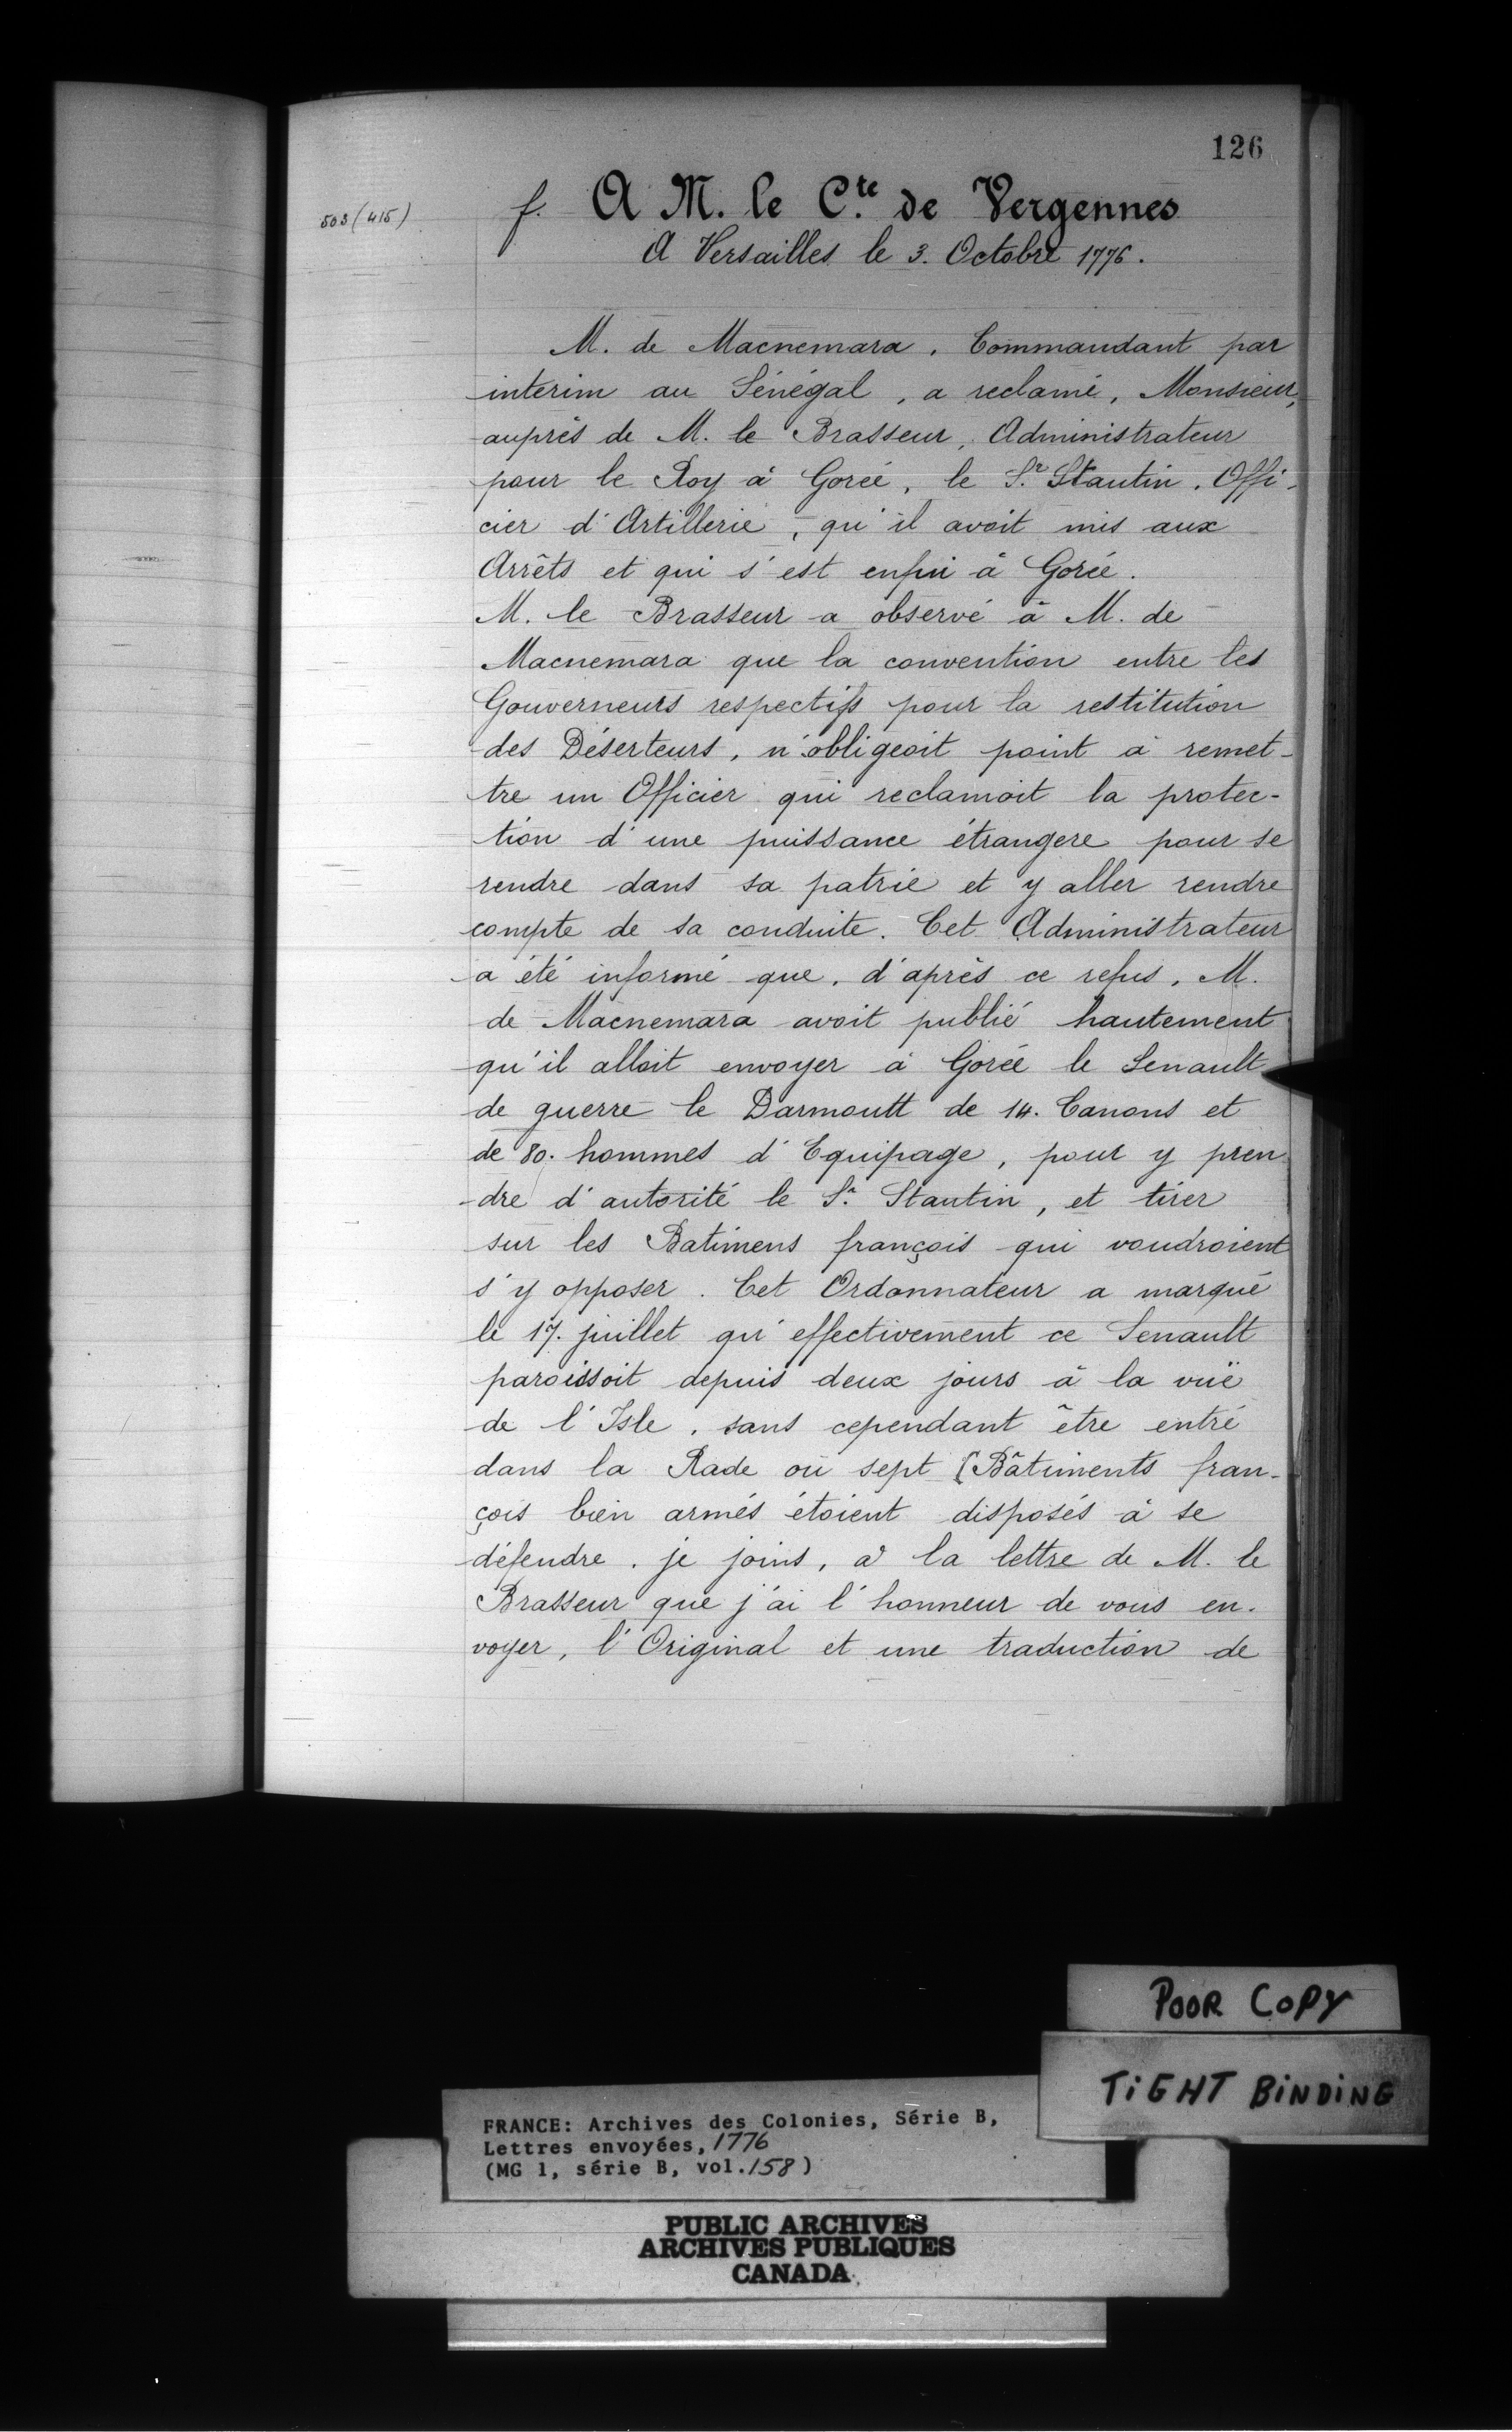 126
503 (415)
f. A M. le C.te de Vergennes
A Versailles le 3. Octobre 1776.
M. de Macnemara, Commandant par
interim au Sénégal, a reclamé, Monsieur,
auprès de M. le Brasseur, Administrateur
pour le Roy à Gorée, le S.r Stantin, Offi-
cier d'Artillerie, qu'il avoit mis aux
Arrêts et qui s'est enfui à Gorée.
M. le Brasseur a observé à M. de
Macnemara que la convention entre les
Gouverneurs respectifs pour la restitution
des Déserteurs, n'obligeoit point à remet-
tre un Officier qui reclamoit la protec-
tion d'une puissance étrangere pour se
rendre dans sa patrie et y aller rendre
compte de sa conduite. Cet Administrateur
a été informé que, d'après ce refus, M.
de Macnemara avoit publié hautement
qu'il alloit envoyer à Gorée le Senault
de guerre le Darmoutt de 14. Canons et
de 80. hommes d'Equipage, pour y pren-
dre d'autorité le S.r Stantin, et tirer
sur les Batimens françois qui voudroient
s'y opposer. Cet Ordonnateur a marqué
le 17. juillet qu'effectivement ce Senault
paroissoit depuis deux jours à la vüe
de l'Isle, sans cependant être entré
dans la Rade où sept [Bâtiments fran-
çois bien armés étoient disposés à se
défendre. je joins, à la lettre de M. le
Brasseur que j'ai l'honneur de vous en-
voyer, l'Original et une traduction de
POOR COPY
TIGHT BINDING
FRANCE: Archives des Colonies, Série B,
Lettres envoyées, 1776
(MG 1, série B, vol. 158)
PUBLIC ARCHIVES
ARCHIVES PUBLIQUES
CANADA